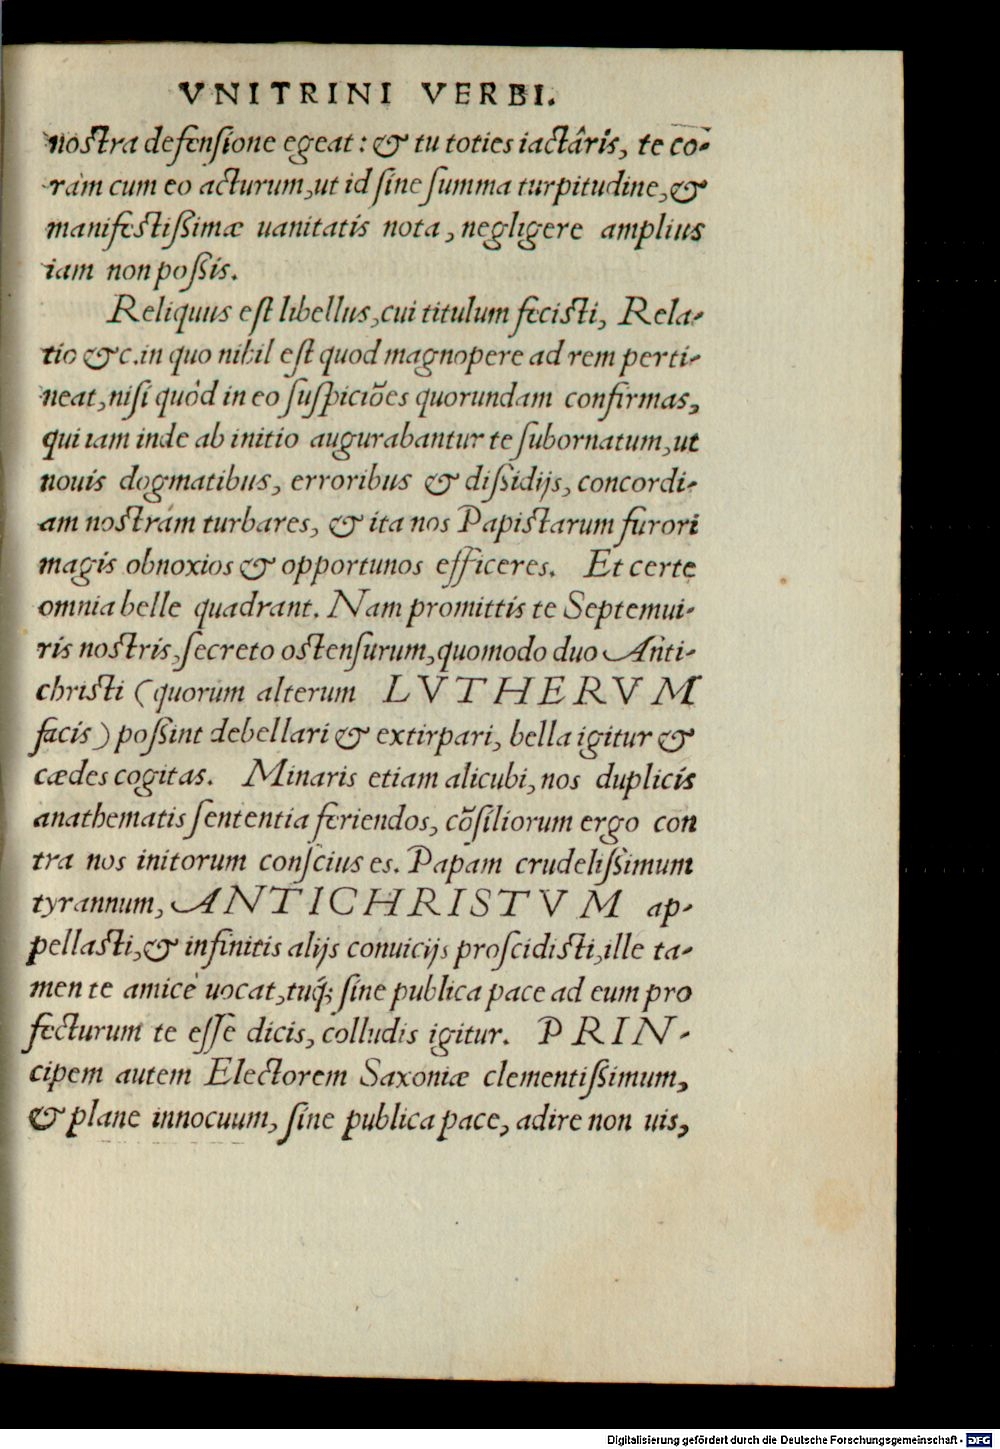 VNITRINI VERBI.
nostra defensione egeat: & tu toties iactâris, te cō-
ràm cum eo acturum, ut id sine summa turpitudine, &
manifestißimæ uanitatis nota, negligere amplius
iam non poßis.
Reliquus est libellus, cui titulum fecisti, Rela-
tio &c. in quo nihil est quod magnopere ad rem perti-
neat, nisi quòd in eo suspiciōes quorundam confirmas,
qui iam inde ab initio augurabantur te subornatum, ut
nouis dogmatibus, erroribus & dißidijs, concordi-
am nostram turbares, & ita nos Papistarum furori
magis obnoxios & opportunos efficeres. Et certe
omnia belle quadrant. Nam promittis te Septemui-
ris nostris, secreto ostensurum, quomodo duo Anti-
christi (quorum alterum LVTHERVM
facis) poßint debellari & extirpari, bella igitur &
cædes cogitas. Minaris etiam alicubi, nos duplicis
anathematis sententia feriendos, cōsiliorum ergo con
tra nos initorum conscius es. Papam crudelißimum
tyrannum, ANTICHRISTVM ap-
pellasti, & infinitis alijs conuicijs proscidisti, ille ta-
men te amicè uocat, tuq́; sine publica pace ad eum pro
fecturum te esse dicis, colludis igitur. PRIN-
cipem autem Electorem Saxoniæ clementißimum,
& plane innocuum, sine publica pace, adire non uis,
Digitalisierung gefördert durch die Deutsche Forschungsgemeinschaft - DFG